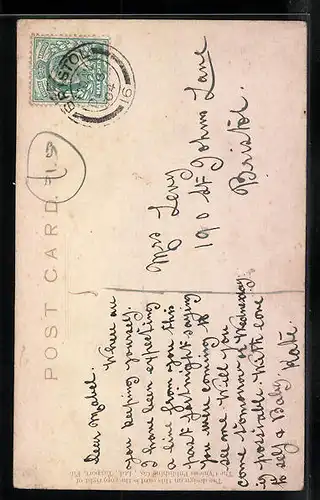 POST CARD.
BRISTOL
04
Mrs Levy
190 St Johns Lane
Bristol.
Dear Mabel.
When are
you keeping yourself.
I have been expecting
a line from you this
past fortnight saying
you were coming to
see me Will you
come tomorrow or Wednesday
if possible. With love
to self & Baby Kate.
The design on this card is the copyright of
The Philco Publishing Co., Ltd.